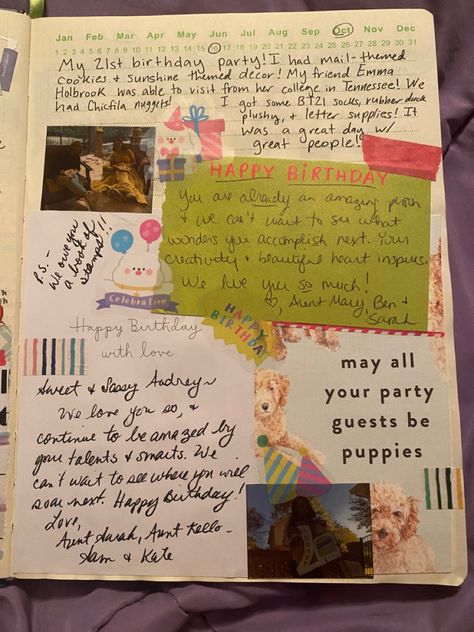 Jan Feb Mar Apr May Jun Jul Aug Sep Oct Nov Dec
1 2 3 4 5 6 7 8 9 10 11 12 13 14 15 16 17 18 19 20 21 22 23 24 25 26 27 28 29 30 31
My 21st birthday party! I had mail-themed
cookies & sunshine themed decor! My friend Emma
Holbrook was able to visit from her college in Tennessee! We
had Chicfila nuggets!
I got some BT21 socks, rubber duck
plushy, & letter supplies! It
was a great day w/
great people!
HAPPY BIRTHDAY
You are already an amazing person
& we can't want to see what
wonders you accomplish next. Your
creativity & beautiful heart inspires.
We love you so much!
♡, Aunt Mary, Ben &
Sarah
P.S. -
We owe you
a book of
stamps!!!
Celebration
HAPPY
BIRTHDAY
Happy Birthday
with love
Sweet & Sassy Audrey~
We love you so, &
continue to be amazed by
your talents & smarts. We
can't want to see where you will
soar next. Happy Birthday!
Love,
Aunt Sarah, Aunt Kello-
Sam & Kate
may all
your party
guests be
puppies